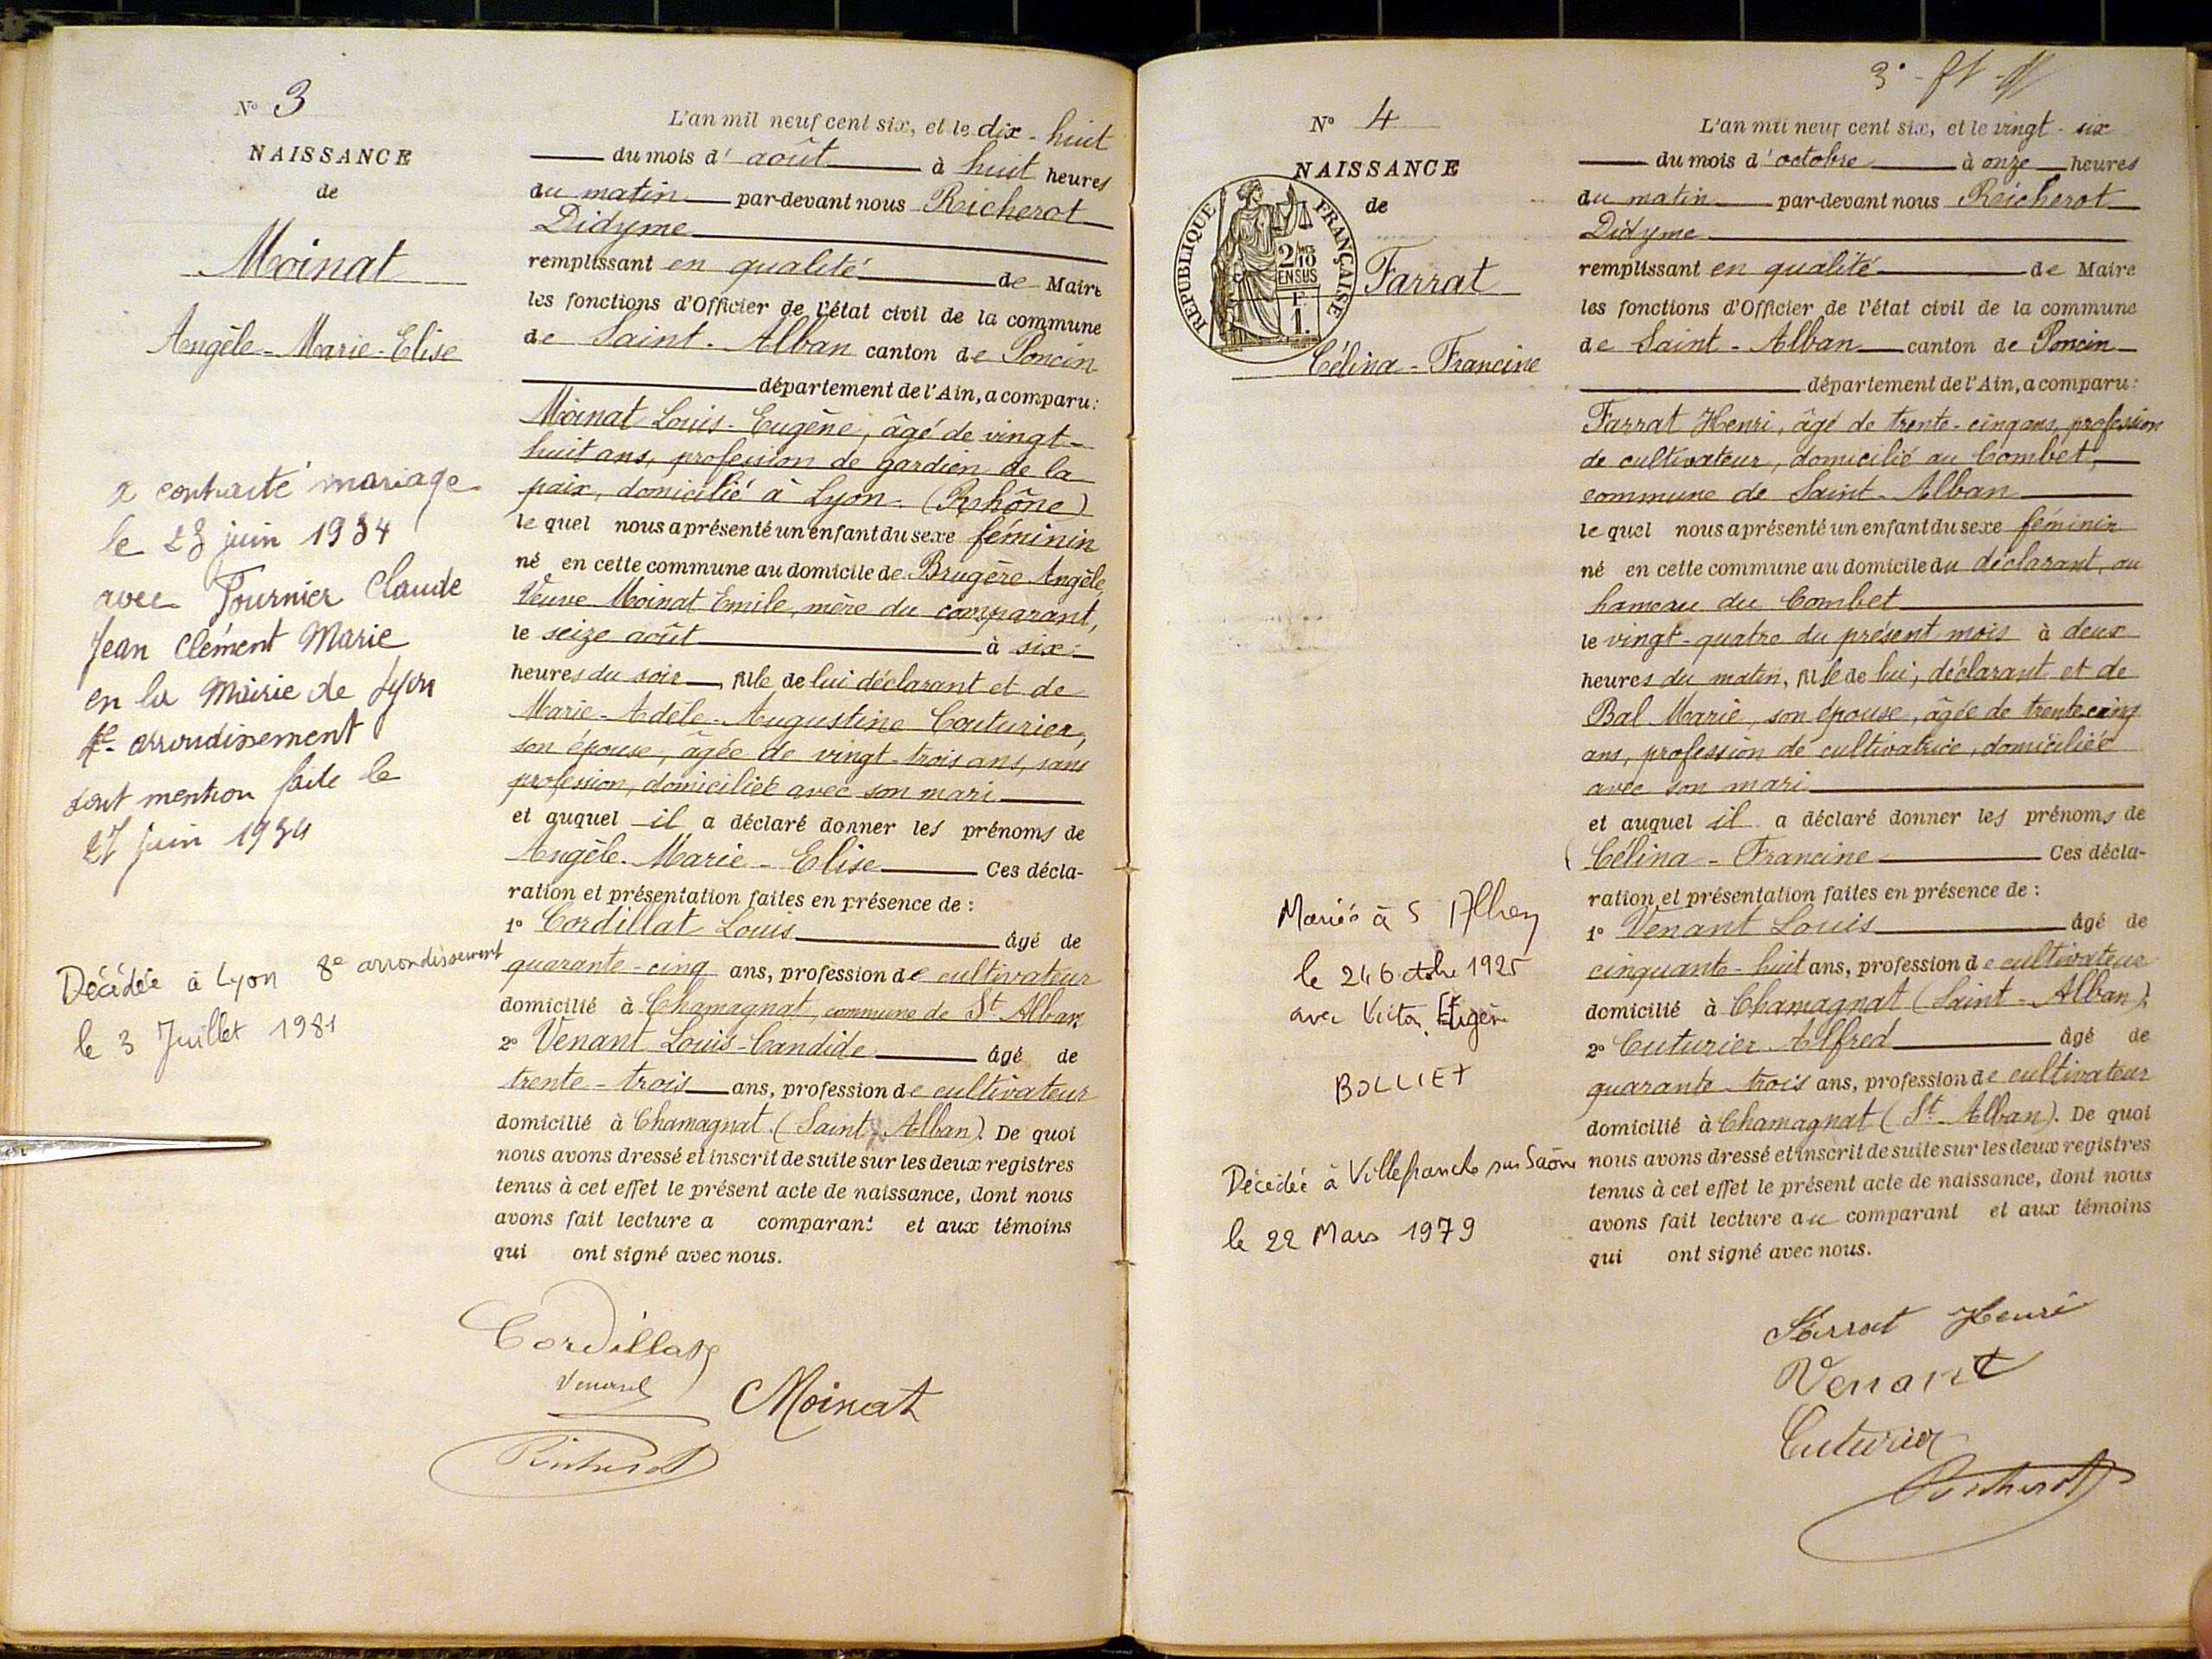 N° 3
NAISSANCE
de
Moinat
Angèle-Marie-Elise
a contracté mariage
le 23 juin 1934
avec Fournier Claude
Jean Clément Marie
en la Mairie de Lyon
4e arrondissement
dont mention faite le
27 juin 1934
Décédée à Lyon 8e arrondissement
le 3 Juillet 1981
L'an mil neuf cent six, et le dix-huit
du mois d'août à huit heures
du matin par-devant nous Reicherot
Didyme
remplissant en qualité de Maire
les fonctions d'Officier de l'état civil de la commune
de Saint-Alban canton de Poncin
département de l'Ain, a comparu:
Moinat Louis-Eugène, âgé de vingt-
huit ans, profession de gardien de la
paix, domicilié à Lyon (Rhône)
le quel nous a présenté un enfant du sexe féminin
né en cette commune au domicile de Brugère Angèle
Veuve Moinat Emile, mère du comparant,
le seize août à six
heures du soir, fille de lui déclarant et de
Marie-Adèle-Augustine Couturier,
son épouse, âgée de vingt-trois ans, sans
profession, domiciliée avec son mari
et auquel il a déclaré donner les prénoms de
Angèle-Marie-Elise Ces décla-
ration et présentation faites en présence de :
1° Cordillat Louis âgé de
quarante-cinq ans, profession de cultivateur
domicilié à Chamagnat, commune de St Alban
2° Venant Louis-Candide âgé de
trente-trois ans, profession de cultivateur
domicilié à Chamagnat (Saint-Alban). De quoi
nous avons dressé et inscrit de suite sur les deux registres
tenus à cet effet le présent acte de naissance, dont nous
avons fait lecture a comparant et aux témoins
qui ont signé avec nous.
Cordillat
Venant
Moinat
Reicherot
N° 4
NAISSANCE
de
RÉPUBLIQUE FRANÇAISE
2/10
EN SUS
1F.
Farrat
Célina-Francine
Mariée à S Alban
le 24 8 octobre 1925
avec Victor Eugène
BOLLIET
Décédée à Villefranche sur Saône
le 22 Mars 1979
L'an mil neuf cent six, et le vingt-six
du mois d'octobre à onze heures
du matin par-devant nous Reicherot
Didyme
remplissant en qualité de Maire
les fonctions d'Officier de l'état civil de la commune
de Saint-Alban canton de Poncin
département de l'Ain, a comparu:
Farrat Henri, âgé de trente-cinq ans, profession
de cultivateur, domicilié au Combet,
commune de Saint-Alban
le quel nous a présenté un enfant du sexe féminin
né en cette commune au domicile du déclarant, au
hameau du Combet
le vingt-quatre du présent mois à deux
heures du matin, fille de lui, déclarant et de
Bal Marie, son épouse, âgée de trente-cinq
ans, profession de cultivatrice, domiciliée
avec son mari
et auquel il a déclaré donner les prénoms de
Célina-Francine Ces décla-
ration et présentation faites en présence de :
1° Venant Louis âgé de
cinquante-huit ans, profession de cultivateur
domicilié à Chamagnat (Saint-Alban),
2° Cuturier Alfred âgé de
quarante-trois ans, profession de cultivateur
domicilié à Chamagnat (St Alban). De quoi
nous avons dressé et inscrit de suite sur les deux registres
tenus à cet effet le présent acte de naissance, dont nous
avons fait lecture au comparant et aux témoins
qui ont signé avec nous.
Farrat Henri
Venant
Cuturier
Reicherot